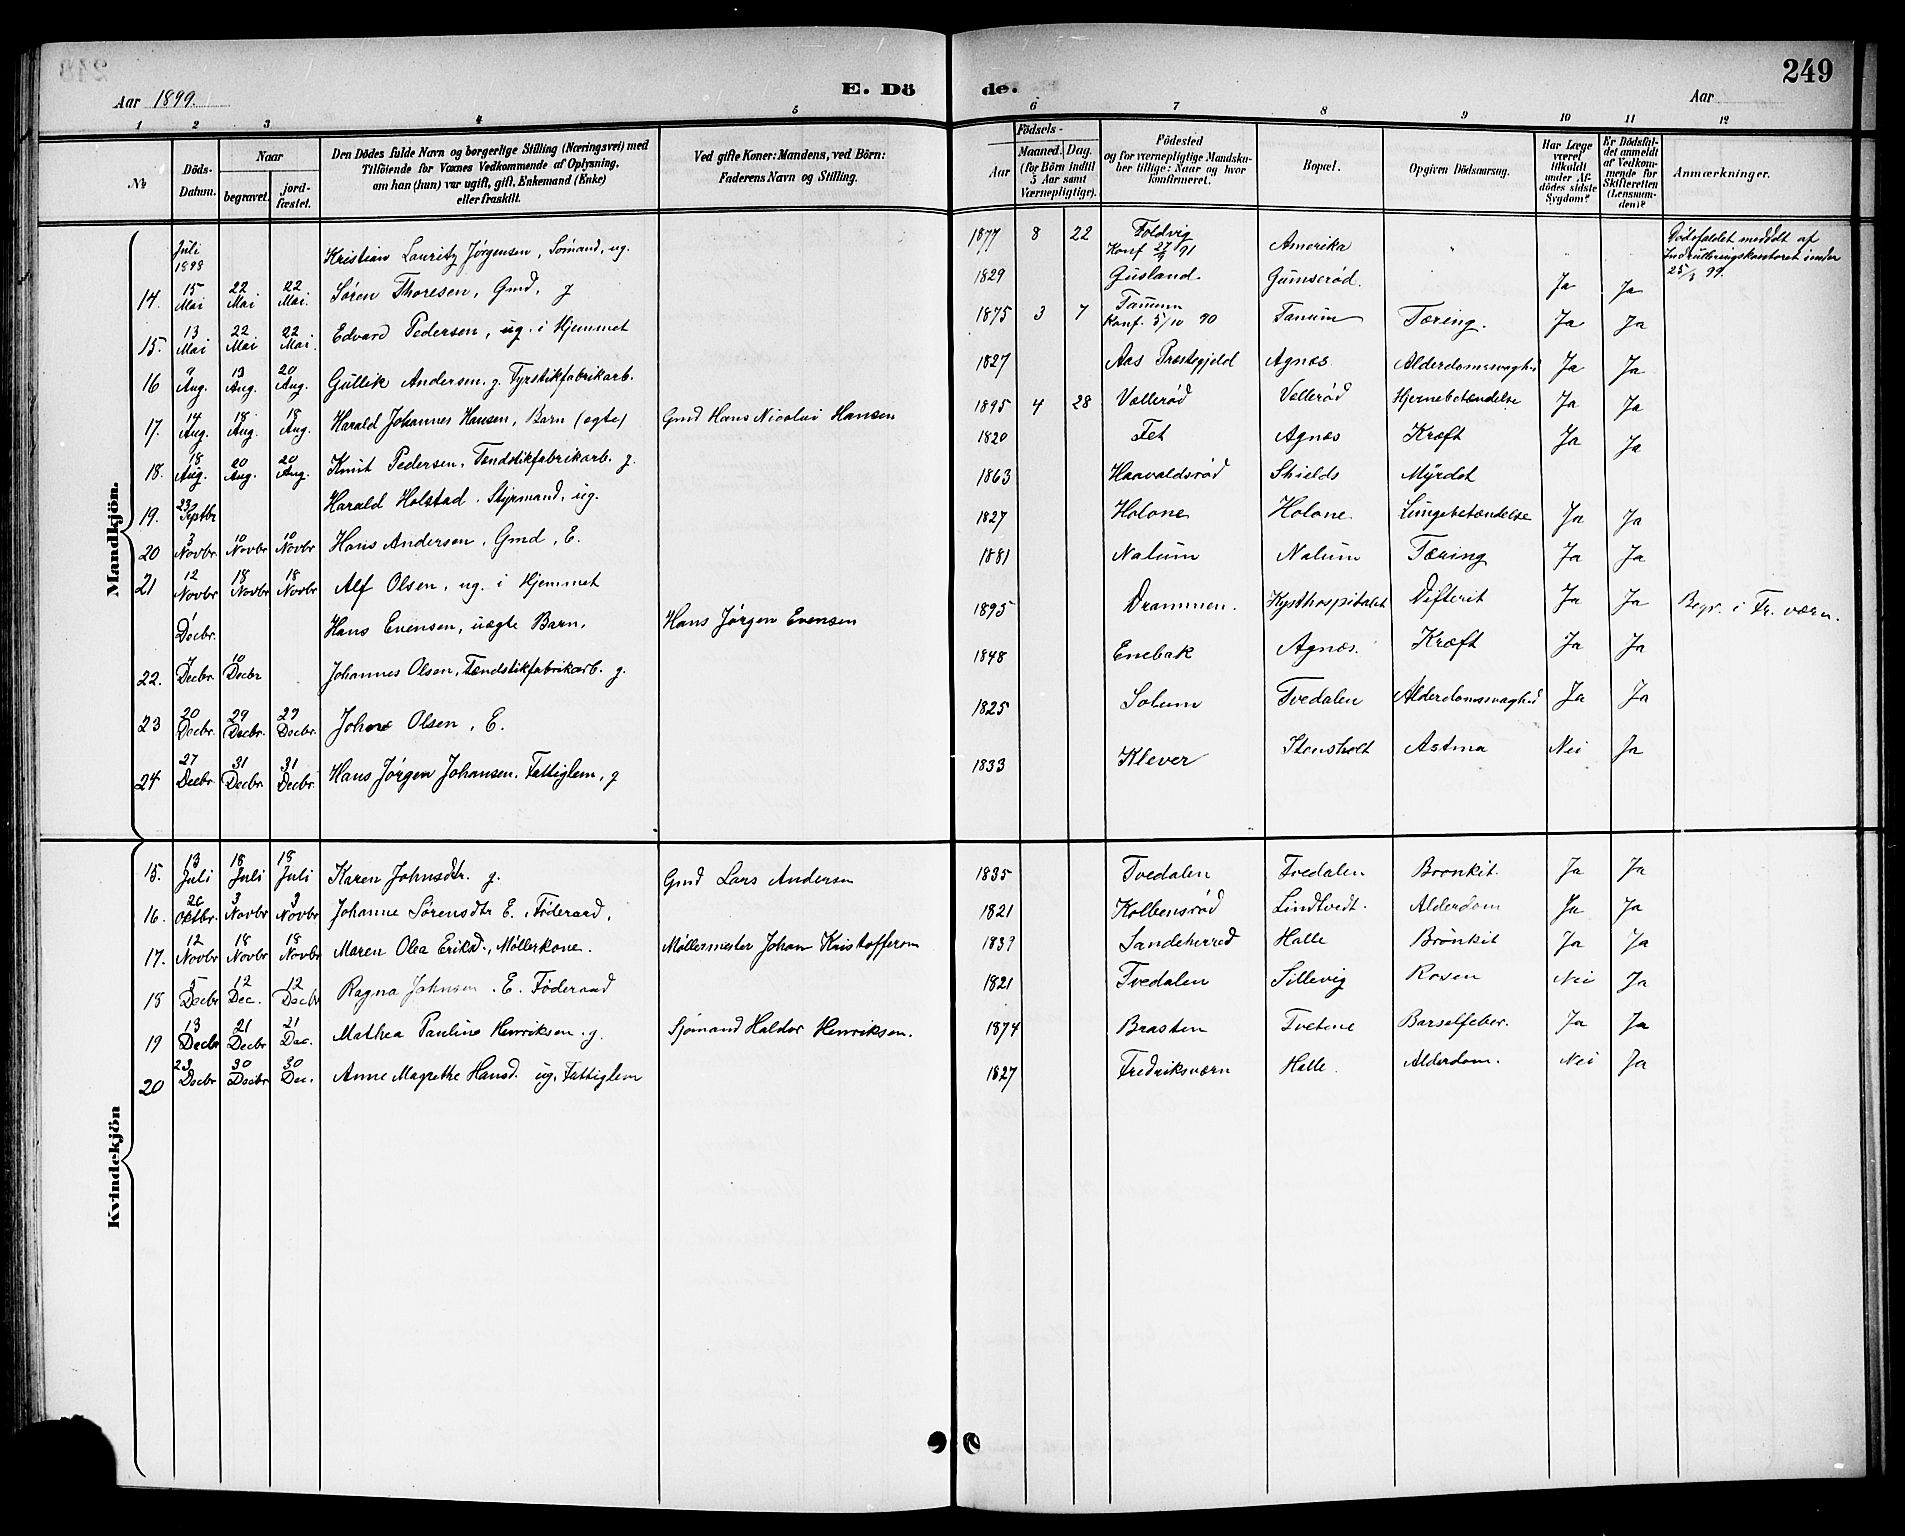 249
Aar 1899.
E. Dö
de.
Aar
1 2 3 4 5 6 7 8 9 10 11 12
№
Döds-Datum.
Naar
begravet.
jord-fæstet.
Den Dödes fulde Navn og borgerlige Stilling (Næringsvei) med
Tilföiende for Voxnes Vedkommende af Oplysning,
om han (hun) var ugift, gift, Enkemand (Enke)
eller fraskilt.
Ved gifte Koner: Mandens, ved Börn:
Faderens Navn og Stilling.
Födsels-
Aar
Maaned. Dag.
(for Börn indtil
5 Aar samt
Værnepligtige).
Födested
og for værnepligtige Mandska-
ber tillige: Naar og hvor
konfirmeret.
Bopæl.
Opgiven Dödsaarsag.
Har Læge
været
tilkaldt
under Af-
dödes sidste
Sygdom?
Er Dödsfal-
det anmeldt
af Vedkom-
mende for
Skifteretten
(Lensman-
den)?
Anmærkninger.
Mandkjön.
Juli 1898 Kristian Lauritz Jørgensen, Sømand, ug. 1877 8 22 Foldvig Konf 27/9 91 Amerika " " " Dødsfaldet meddelt af Indrulleringskontoret under 25/3 99.
14. 15 Mai 22 Mai 22 Mai. Søren Thoresen, Gmd, g 1829 Gusland Gumserød. Ja Ja
15. 13 Mai 22 Mai 22 Mai. Edvard Pedersen, ug. i Hjemmet 1875 3 7 Tanum Konf. 5/10 90 Tanum Tæring. Ja Ja
16 9 Aug. 13 Aug. 20 Aug. Gullik Andersen. g. Fyrstikfabrikarb. 1827 Aas Præstegjeld Agnæs. Alderdomssvaghd Ja Ja
17. 14 Aug. 18 Aug. 18 Aug. Harald Johannes Hansen, Barn (ægte) Gmd Hans Nicolai Hansen 1895 4 28 Vællerød Vællerød Hjernebetændelse Ja Ja
18. 18 Aug. 20 Aug. 20 Aug. Knut Pedersen, Tændstikfabrikarb. g. 1820 Fet Agnæs Kræft Ja Ja
19. 23 Septbr Harald Holstad. Styrmand, ug. 1863 Haavaldsrød Shields Myrdet
20 3 Novbr 10 Novbr 10 Novbr Hans Andersen, Gmd, E. 1827 Holone Holone Lungebetændelse Ja Ja
21 12 Novbr 18 Novbr 18 Novbr Alf Olsen, ug. i Hjemmet 1881 Nalum Nalum Tæring Ja Ja
Decbr. Hans Evensen, uægte Barn, Hans Jørgen Evensen 1895 Drammen. Kysthospitalet Difterit Ja Ja Begr. i Fr.værn.
22. 7 Decbr. 10 Decbr Johannes Olsen, Tændstikfabrikarb. g. 1848 Enebak Agnæs. Kræft Ja Ja
23 20 Decbr. 29 Decbr. 29 Decbr. Johne Olsen, E. 1825 Solum Tvedalen Alderdomssvaghd Ja Ja
24 27 Decbr. 31 Decbr. 31 Decbr. Hans Jørgen Johansen. Fattiglem, g 1833 Klever Stensholt Astma Nei Ja
Kvindekjön
15. 13 Juli 18 Juli 18 Juli Karen Johnsdtr. g. Gmd Lars Andersen 1835 Tvedalen Tvedalen Bronkit. Ja Ja
16. 26 Oktbr. 3 Novbr 3 Novbr Johanne Sørensdtr E., Føderaad, 1821 Kolbensrød Lindtvedt. Alderdom Ja Ja
17. 12 Novbr 18 Novbr 18 Novbr Maren Olea Eriksd., Møllerkone. Møllermester Johan Kristofferson 1839 Sandeherred Halle Bronkit Ja Ja
18 5 Decbr 12 Dec. 12 Decbr Ragna Johnsen. E. Føderaad 1821 Tvedalen Sillevig Rosen Nei Ja
19 13 Decbr 21 Decbr 21 Dec. Mathea Pauline Henriksen. g. Sjømand Haldor Henriksen. 1874 Brasten Tvetene Barselfeber. Ja Ja
20 23 Decbr 30 Decbr 30 Dec. Anne Magrethe Hansd. ug, Fattiglem 1827 Fredriksværn Halle. Alderdom. Nei Ja